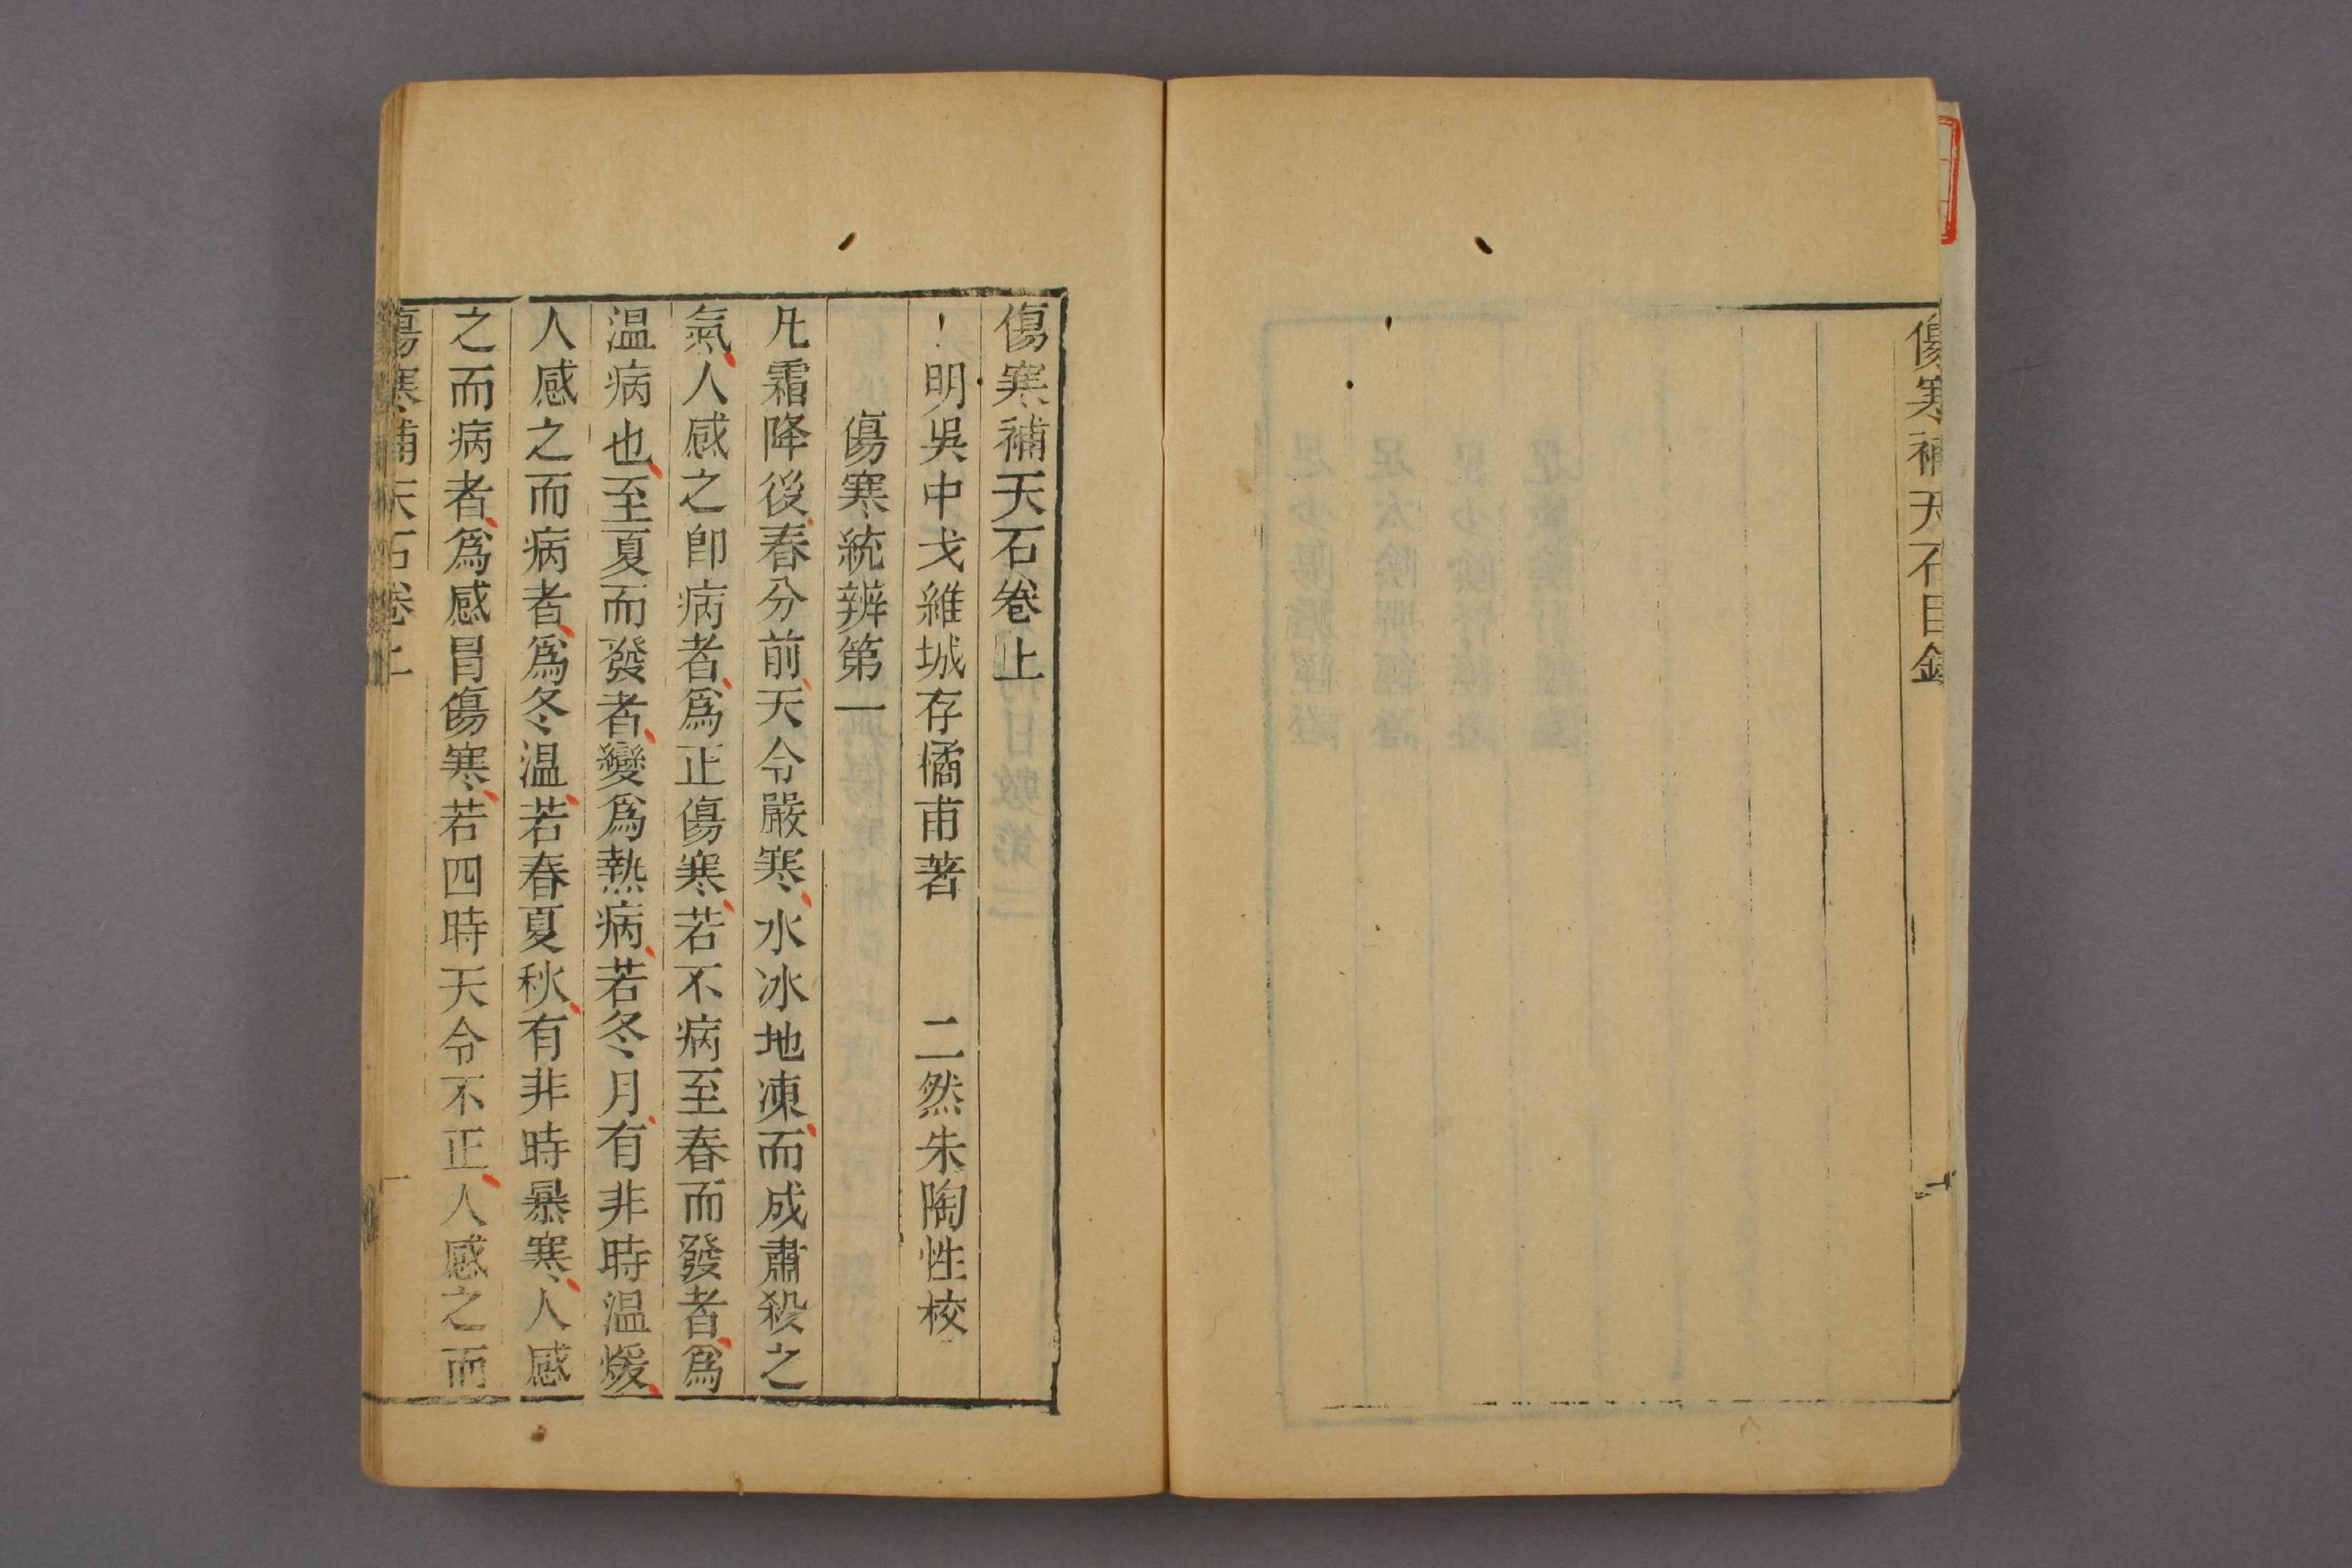 傷寒補天石目錄
傷寒補天石卷上
明吳中戈維城存橘甫著　二然朱陶性校
傷寒統辨第一
凡霜降後春分前天令嚴寒水冰地凍而成肅殺之
氣人感之即病者爲正傷寒若不病至春而發者爲
温病也至夏而發者變爲熱病若冬月有非時温煖
人感之而病者爲冬温若春夏秋有非時暴寒人感
之而病者爲感冒傷寒若四時天令不正人感之而
傷寒補天石卷上
一